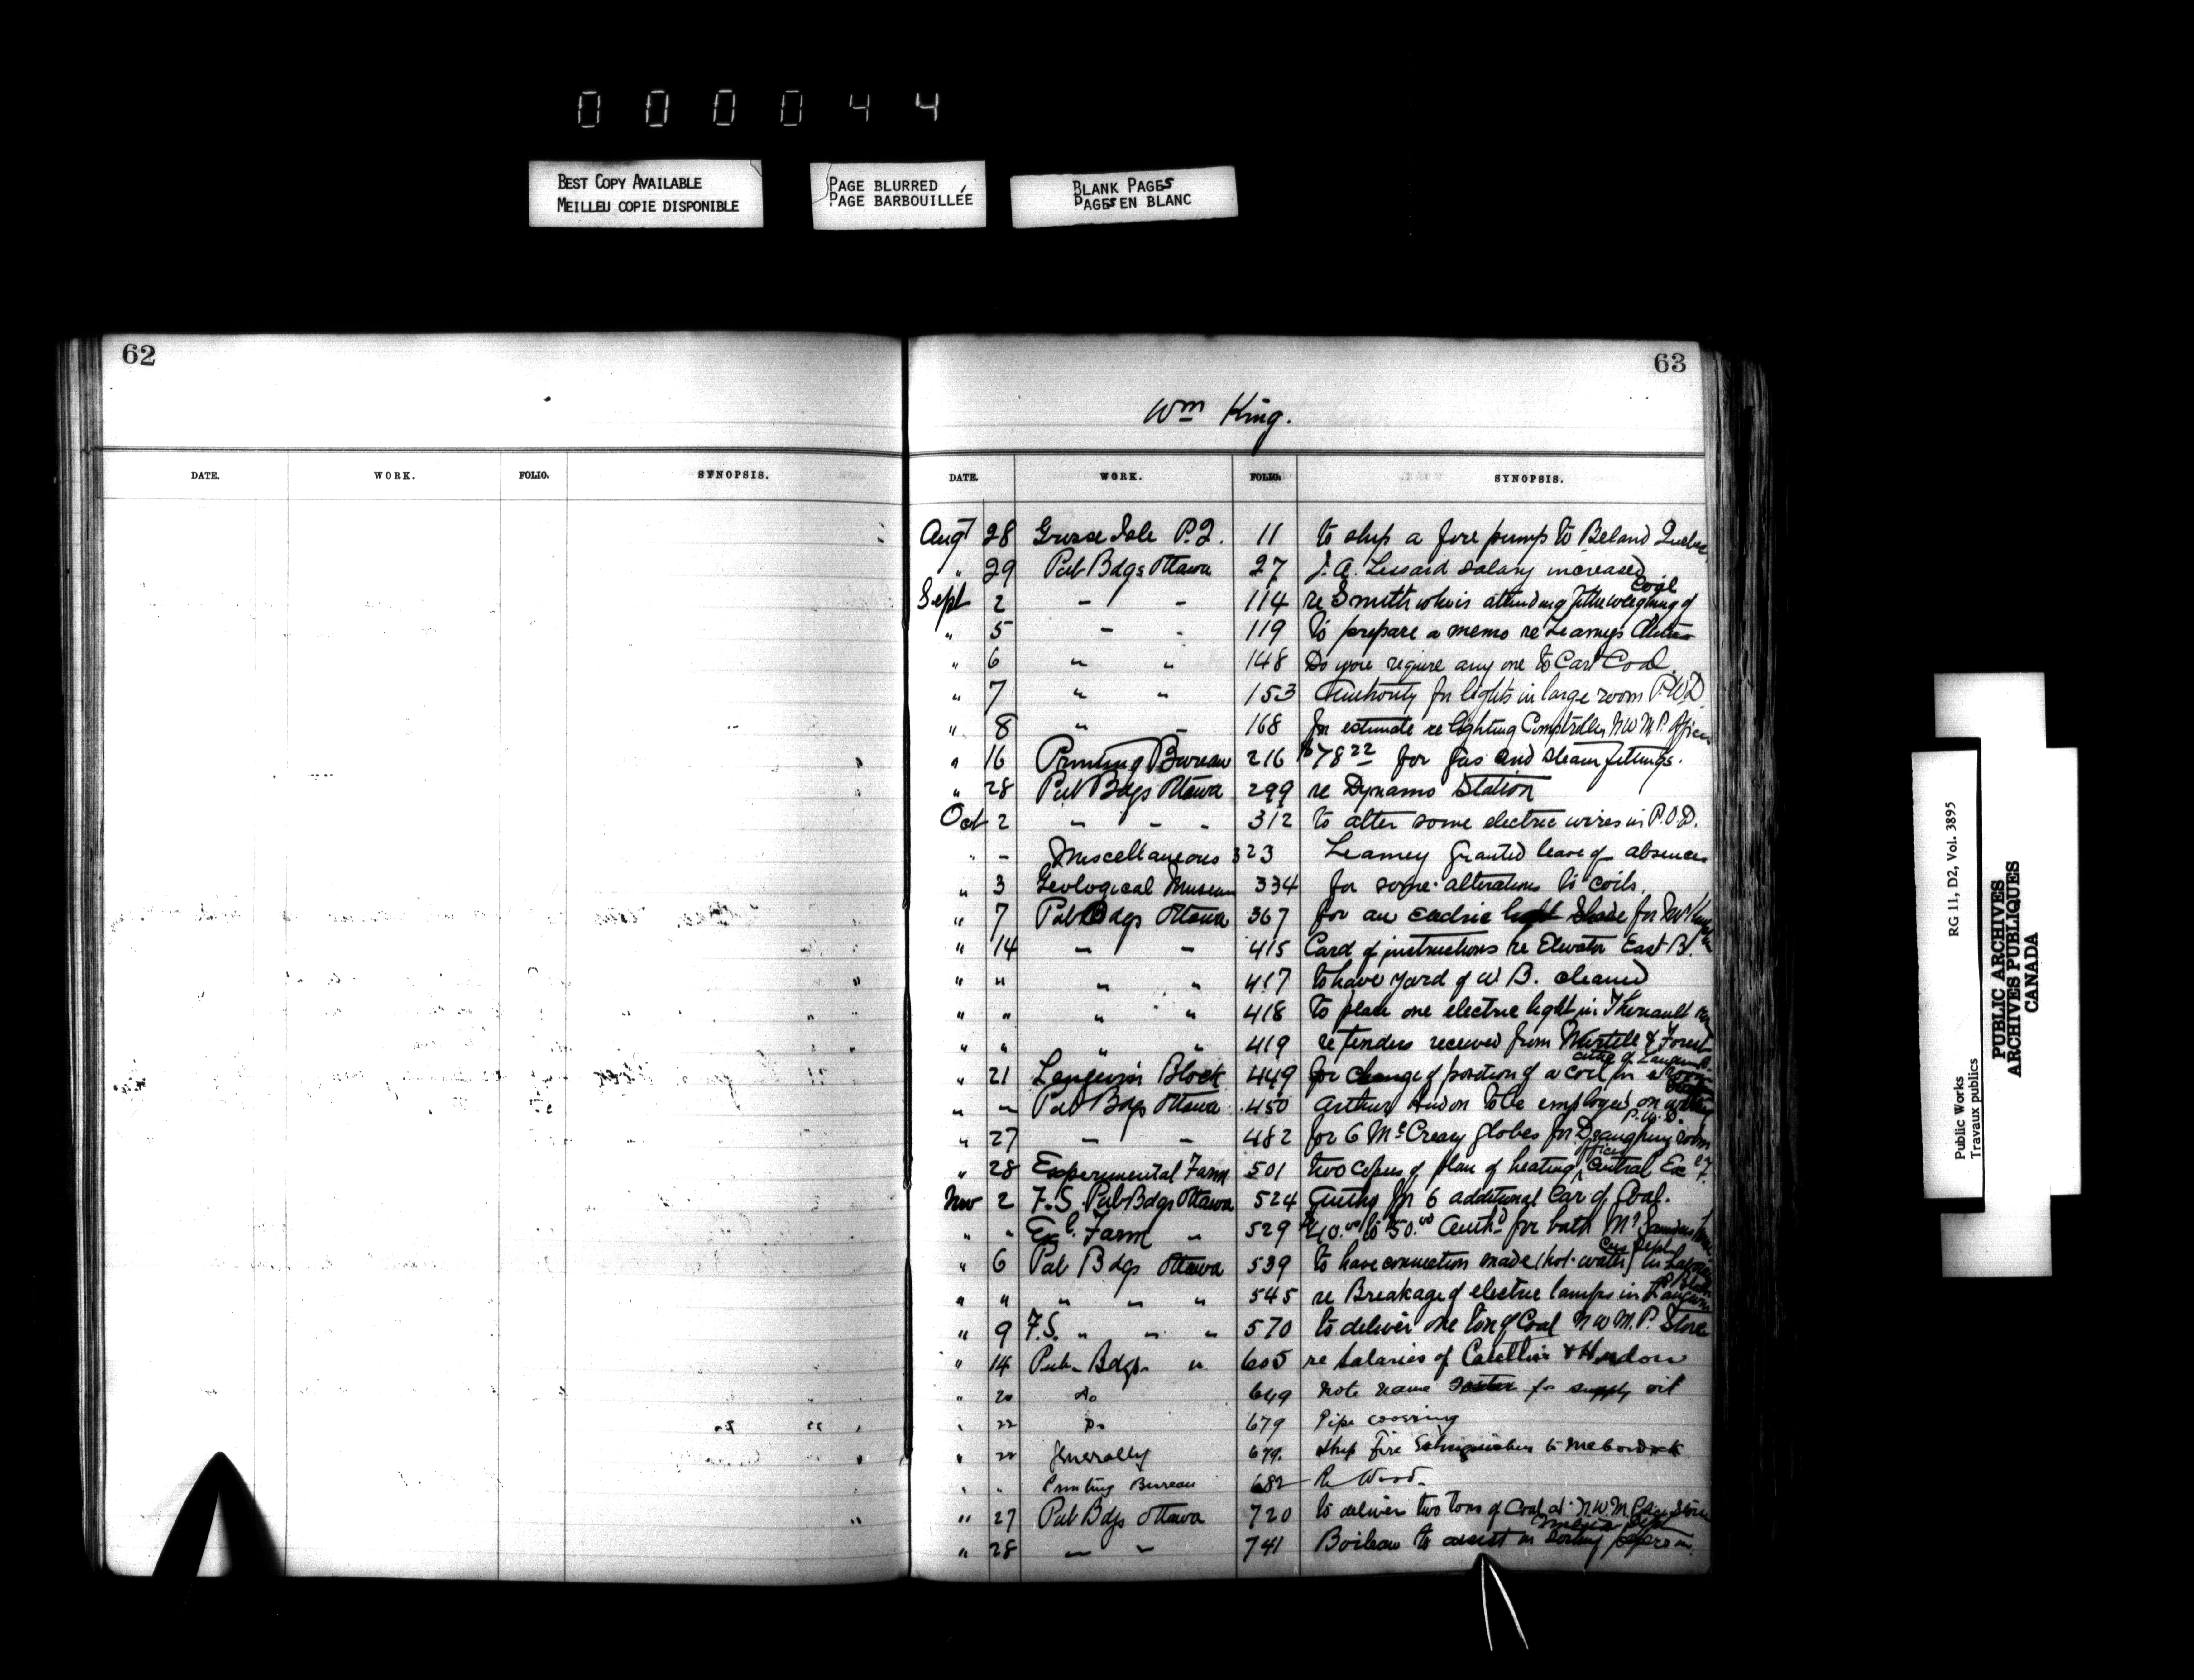 0 0 0 0 4 4
BEST COPY AVAILABLE
MEILLEU COPIE DISPONIBLE
PAGE BLURRED
PAGE BARBOUILLÉE
BLANK PAGES
PAGES EN BLANC
62
DATE. WORK. FOLIO. SYNOPSIS.
63
Wm King.
DATE. WORK. FOLIO. SYNOPSIS.
Augt 28 Grosse Isle P.Q. 11 to ship a fire pump to Beland Quebec
" 29 Pub Bdgs Ottawa 27 J. A. Lessard salary increased
Sept 2 - - 114 re Smith who is attending to the weighing of Coal
" 5 - - 119 to prepare a memo re Leamys
" 6 " " 148 Do you require any one to Cart Coal.
" 7 " " 153 Authority for lights in large room P.W.D.
" 8 " - 168 for estimate re lighting Comptroller N W M P. Offices
" 16 Printing Bureau 216 $78 22 for gas and steam fittings.
" 28 Pub Bdgs Ottawa 299 re Dynamo Station
Oct 2 - - - 312 to alter some electric wires in P.O.D.
" - Miscellaneous 323 Leamey granted leave of absence
" 3 Geological Museum 334 for some alterations to coils.
" 7 Pub Bdgs Ottawa 367 for an electric light shade for
" 14 - - 415 Card of instructions re Elevator East B.
" " " " 417 to have yard of W B. cleaned
" " " " 418 to place one electric light in Theriault
" " " " 419 re tenders received from & Forest
" 21 Langevin Block 449 for change of position of a coil in attic of Langevin B.
" - Pub Bdgs Ottawa 450 Arthur Hudon to be employed on
" 27 - - 482 for 6 McCreary globes for Draughting room P.W.D.
" 28 Experimental Farm 501 two copies of plan of heating offices Central Ex F.
Nov 2 F.S. Pub Bdgs Ottawa 524 Authy for 6 additional Car of Coal.
" " Ex l. Farm " 529 $40.00 to 50.00 Authd for bath Mr Saunders
" 6 Pub Bdgs Ottawa 539 to have connection made (hot water) in
" " " " " 545 re Breakage of electric lamps in Langevin Block
" 9 F.S. " " " 570 to deliver one ton of Coal N W M.P. Store
" 14 Pub. Bdgs. " 605 re Salaries of & Hudon
" 20 do 649 note name Foster for supply oil
" 22 Do 679 Pipe covering
" 22 Generally 679. Ship Fire Extinguishers to
" " Printing Bureau 682 Re Wood.
" 27 Pub Bdgs Ottawa 720 to deliver two tons of Coal at N.W.M. Police Store
" 28 - - 741 Boileau to assist in sorting papers in
RG 11, D2, Vol. 3895
Public Works
Travaux publics
PUBLIC ARCHIVES
ARCHIVES PUBLIQUES
CANADA